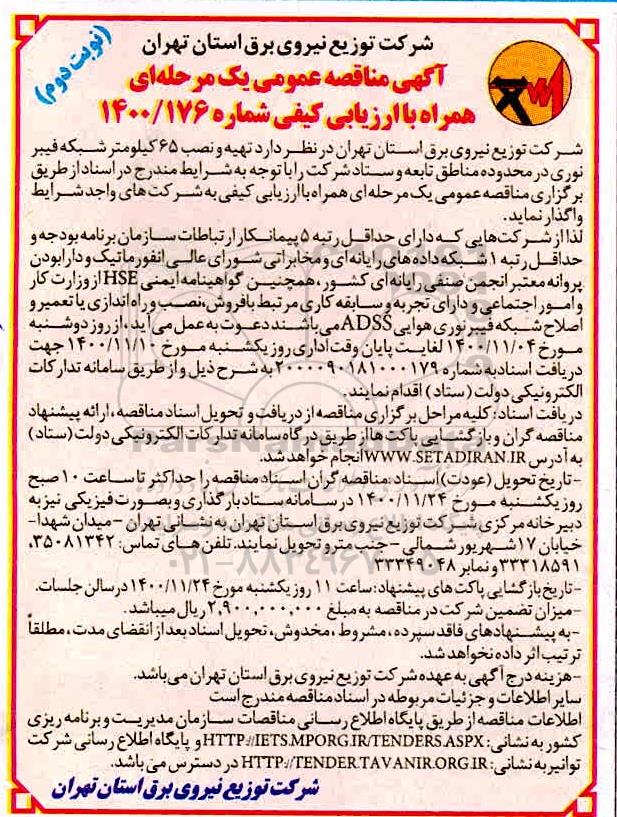 (نوبت دوم)
شرکت توزیع نیروی برق استان تهران
آگهی مناقصه عمومی یک مرحله‌ای
همراه با ارزیابی کیفی شماره ۱۴۰۰/۱۷۶
شرکت توزیع نیروی برق استان تهران در نظر دارد تهیه و نصب ۶۵ کیلومتر شبکه فیبر
نوری در محدوده مناطق تابعه و ستاد شرکت را با توجه به شرایط مندرج در اسناد از طریق
برگزاری مناقصه عمومی یک مرحله‌ای همراه با ارزیابی کیفی به شرکت های واجد شرایط
واگذار نماید.
لذا از شرکت‌هایی که دارای حداقل رتبه ۵ پیمانکار ارتباطات سازمان برنامه بودجه و
حداقل رتبه ۱ شبکه داده های رایانه ای و مخابراتی شورای عالی انفورماتیک و دارا بودن
پروانه معتبر انجمن صنفی رایانه ای کشور، همچنین گواهینامه ایمنی HSE از وزارت کار
و امور اجتماعی و دارای تجربه و سابقه کاری مرتبط با فروش، نصب و راه اندازی یا تعمیر و
اصلاح شبکه فیبر نوری هوایی ADSS می باشند دعوت به عمل می آید، از روز دوشنبه
مورخ ۱۴۰۰/۱۱/۰۴ لغایت پایان وقت اداری روز یکشنبه مورخ ۱۴۰۰/۱۱/۱۰ جهت
دریافت اسناد به شماره ۲۰۰۰۰۹۰۱۸۱۰۰۰۱۷۹ به شرح ذیل و از طریق سامانه تدارکات
الکترونیکی دولت (ستاد) اقدام نمایند.
دریافت اسناد: کلیه مراحل برگزاری مناقصه از دریافت و تحویل اسناد مناقصه، ارائه پیشنهاد
مناقصه گران و بازگشایی پاکت ها از طریق درگاه سامانه تدارکات الکترونیکی دولت (ستاد)
به آدرس WWW.SETADIRAN.IR انجام خواهد شد.
-تاریخ تحویل (عودت) اسناد: مناقصه گران اسناد مناقصه را حداکثر تا ساعت ۱۰ صبح
روز یکشنبه مورخ ۱۴۰۰/۱۱/۲۴ در سامانه ستاد بارگذاری و بصورت فیزیکی نیز به
دبیرخانه مرکزی شرکت توزیع نیروی برق استان تهران به نشانی تهران – میدان شهدا-
خیابان ۱۷ شهریور شمالی – جنب مترو تحویل نمایند. تلفن های تماس: ۳۵۰۸۱۳۴۲،
۳۳۳۱۸۵۹۱ و نمابر ۳۳۳۴۹۰۴۸
-تاریخ بازگشایی پاکت های پیشنهاد: ساعت ۱۱ روز یکشنبه مورخ ۱۴۰۰/۱۱/۲۴ در سالن جلسات.
-میزان تضمین شرکت در مناقصه به مبلغ ۲,۹۰۰,۰۰۰,۰۰۰ ریال میباشد.
-به پیشنهادهای فاقد سپرده، مشروط، مخدوش، تحویل اسناد بعد از انقضای مدت، مطلقاً
ترتیب اثر داده نخواهد شد.
-هزینه درج آگهی به عهده شرکت توزیع نیروی برق استان تهران می‌باشد.
سایر اطلاعات و جزئیات مربوطه در اسناد مناقصه مندرج است
اطلاعات مناقصه از طریق پایگاه اطلاع رسانی مناقصات سازمان مدیریت و برنامه ریزی
کشور به نشانی: HTTP://IETS.MPORG.IR/TENDERS.ASPX و پایگاه اطلاع رسانی شرکت
توانیر به نشانی: HTTP://TENDER.TAVANIR.ORG.IR در دسترس می باشد.
شرکت توزیع نیروی برق استان تهران